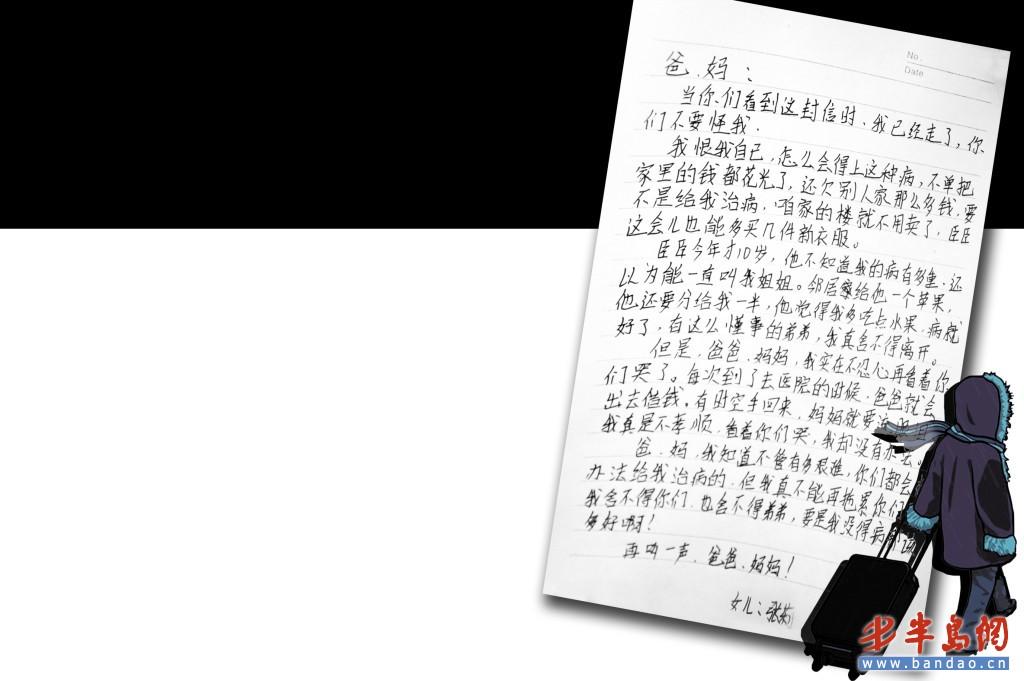 No.
Date
爸.妈：
当你们看到这封信时、我已经走了，你
们不要怪我.
我恨我自己，怎么会得上这种病，不单把
家里的钱都花光了，还欠别人家那么多钱，要
不是给我治病，咱家的楼就不用卖了，臣臣
这会儿也能多买几件新衣服。
臣臣今年才10岁，他不知道我的病有多重.还
以为能一直叫我姐姐。邻居给他一个苹果，
他还要分给我一半，他觉得我多吃点水果，病就
好了，有这么懂事的弟弟，我真舍不得离开。
但是.爸爸.妈妈，我实在不忍心再看着你
们哭了。每次到了去医院的时候，爸爸就会
出去借钱。有时空手回来，妈妈就要
我真是不孝顺，看着你们哭，我却没有办法。
爸.妈，我知道不管有多艰难，你们都会
办法给我治病的.但我真不能再拖累你们
我舍不得你们.也舍不得弟弟，要是我没得病
多好啊！
再叫一声.爸爸.妈妈！
女儿：张
半岛網
www.bandao.cn